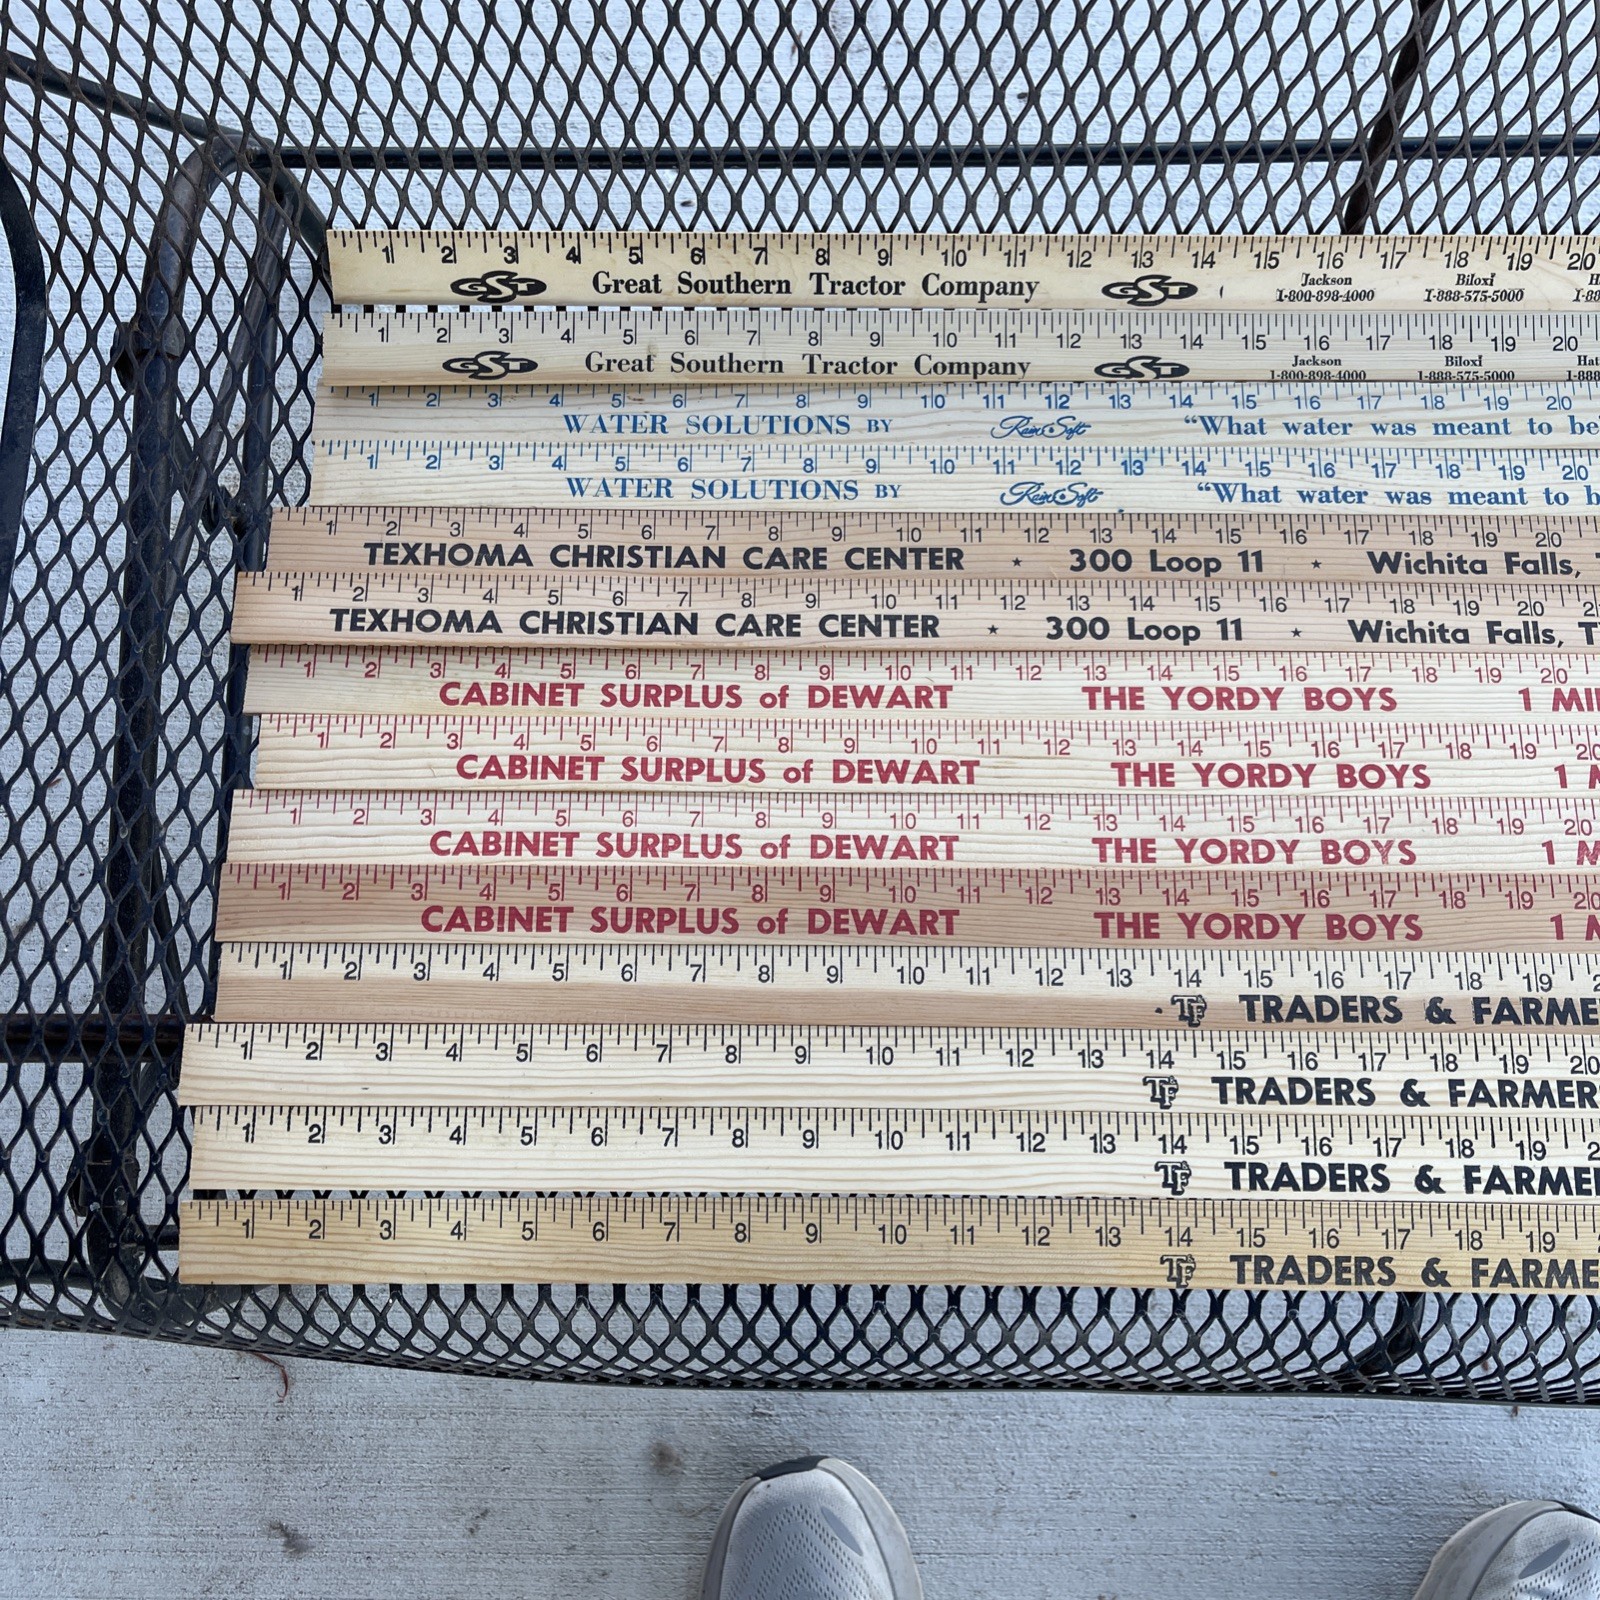 1 2 3 4 5 6 7 8 9 10 11 12 13 14 15 16 17 18 19 20
GST Great Southern Tractor Company GST Jackson Biloxi
1-800-898-4000 1-888-575-5000 1-88
1 2 3 4 5 6 7 8 9 10 11 12 13 14 15 16 17 18 19 20
GST Great Southern Tractor Company GST Jackson Biloxi Hat
1-800-898-4000 1-888-575-5000 1-888
1 2 3 4 5 6 7 8 9 10 11 12 13 14 15 16 17 18 19 20
WATER SOLUTIONS BY RainSoft “What water was meant to be
1 2 3 4 5 6 7 8 9 10 11 12 13 14 15 16 17 18 19 20
WATER SOLUTIONS BY RainSoft “What water was meant to b
1 2 3 4 5 6 7 8 9 10 11 12 13 14 15 16 17 18 19 20
TEXHOMA CHRISTIAN CARE CENTER ★ 300 Loop 11 ★ Wichita Falls,
1 2 3 4 5 6 7 8 9 10 11 12 13 14 15 16 17 18 19 20 2
TEXHOMA CHRISTIAN CARE CENTER ★ 300 Loop 11 ★ Wichita Falls, T
1 2 3 4 5 6 7 8 9 10 11 12 13 14 15 16 17 18 19 20
CABINET SURPLUS of DEWART THE YORDY BOYS 1 MI
1 2 3 4 5 6 7 8 9 10 11 12 13 14 15 16 17 18 19 20
CABINET SURPLUS of DEWART THE YORDY BOYS 1 M
1 2 3 4 5 6 7 8 9 10 11 12 13 14 15 16 17 18 19 20
CABINET SURPLUS of DEWART THE YORDY BOYS 1 M
1 2 3 4 5 6 7 8 9 10 11 12 13 14 15 16 17 18 19 20
CABINET SURPLUS of DEWART THE YORDY BOYS 1 M
1 2 3 4 5 6 7 8 9 10 11 12 13 14 15 16 17 18 19 2
TF TRADERS & FARME
1 2 3 4 5 6 7 8 9 10 11 12 13 14 15 16 17 18 19 20
TF TRADERS & FARMERS
1 2 3 4 5 6 7 8 9 10 11 12 13 14 15 16 17 18 19 2
TF TRADERS & FARMER
1 2 3 4 5 6 7 8 9 10 11 12 13 14 15 16 17 18 19
TF TRADERS & FARME